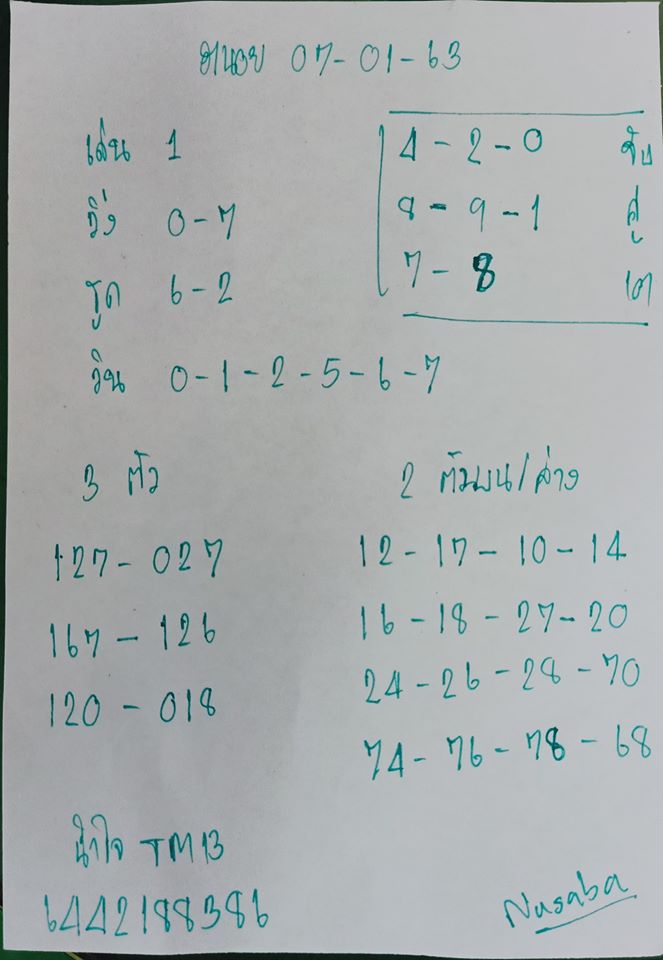 ฮานอย 07-01-63
เด่น 1
วิ่ง 0-7
รูด 6-2
4-2-0 จับ
8-9-1 คู่
7-8
วิน 0-1-2-5-6-7
3 ตัว
127-027
167-126
120-018
2 ตัวบน/ล่าง
12-17-10-14
16-18-27-20
24-26-28-70
74-76-78-68
น้ำใจ TM13
6442188386
Nusaba